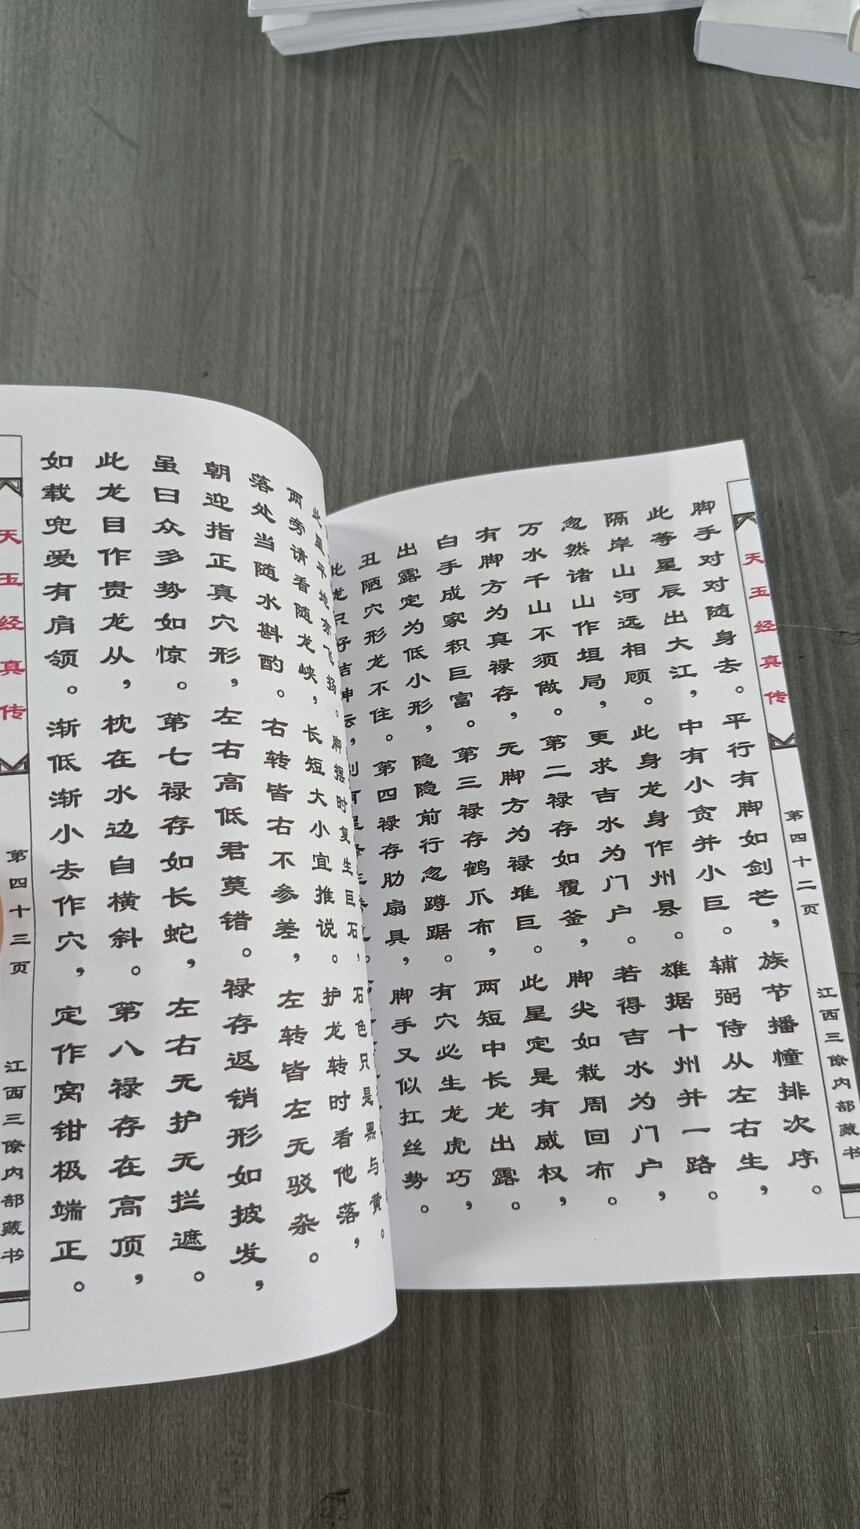 天玉经真传
第四十二页
江西三僚内部藏书
脚手对对随身去。平行有脚如剑芒，族节播幢排次序。
此等星辰出大江，中有小贪并小巨。辅弼侍从左右生，
隔岸山河远相顾。此身龙身作州县。雄据十州并一路。
忽然诸山作垣局，更求吉水为门户。若得吉水为门户，
万水千山不须做。第二禄存如覆釜，脚尖如栽周回布。
有脚方为真禄存，无脚方为禄堆巨。此星定是有威权，
白手成家积巨富。第三禄存鹤爪布，两短中长龙出露。
出露定为低小形，隐隐前行忽蹲踞。有穴必生龙虎巧，
丑陋穴形龙不住。第四禄存肋扇具，脚手又似扛丝势。
此龙只好结神
此星平地亦飞 时复生巨石，石色只是黑与黄。
两旁请看随龙峡，长短大小宜推说。护龙转时看他落，
落处当随水斟酌。右转皆右不参差，左转皆左无驳杂。
朝迎指正真穴形，左右高低君莫错。禄存返销形如披发，
虽曰众多势如惊。第七禄存如长蛇，左右无护无拦遮。
此龙目作贵龙从，枕在水边自横斜。第八禄存在高顶，
如载兜爱有肩领。渐低渐小去作穴，定作窝钳极端正。
天玉经真传
第四十三页
江西三僚内部藏书